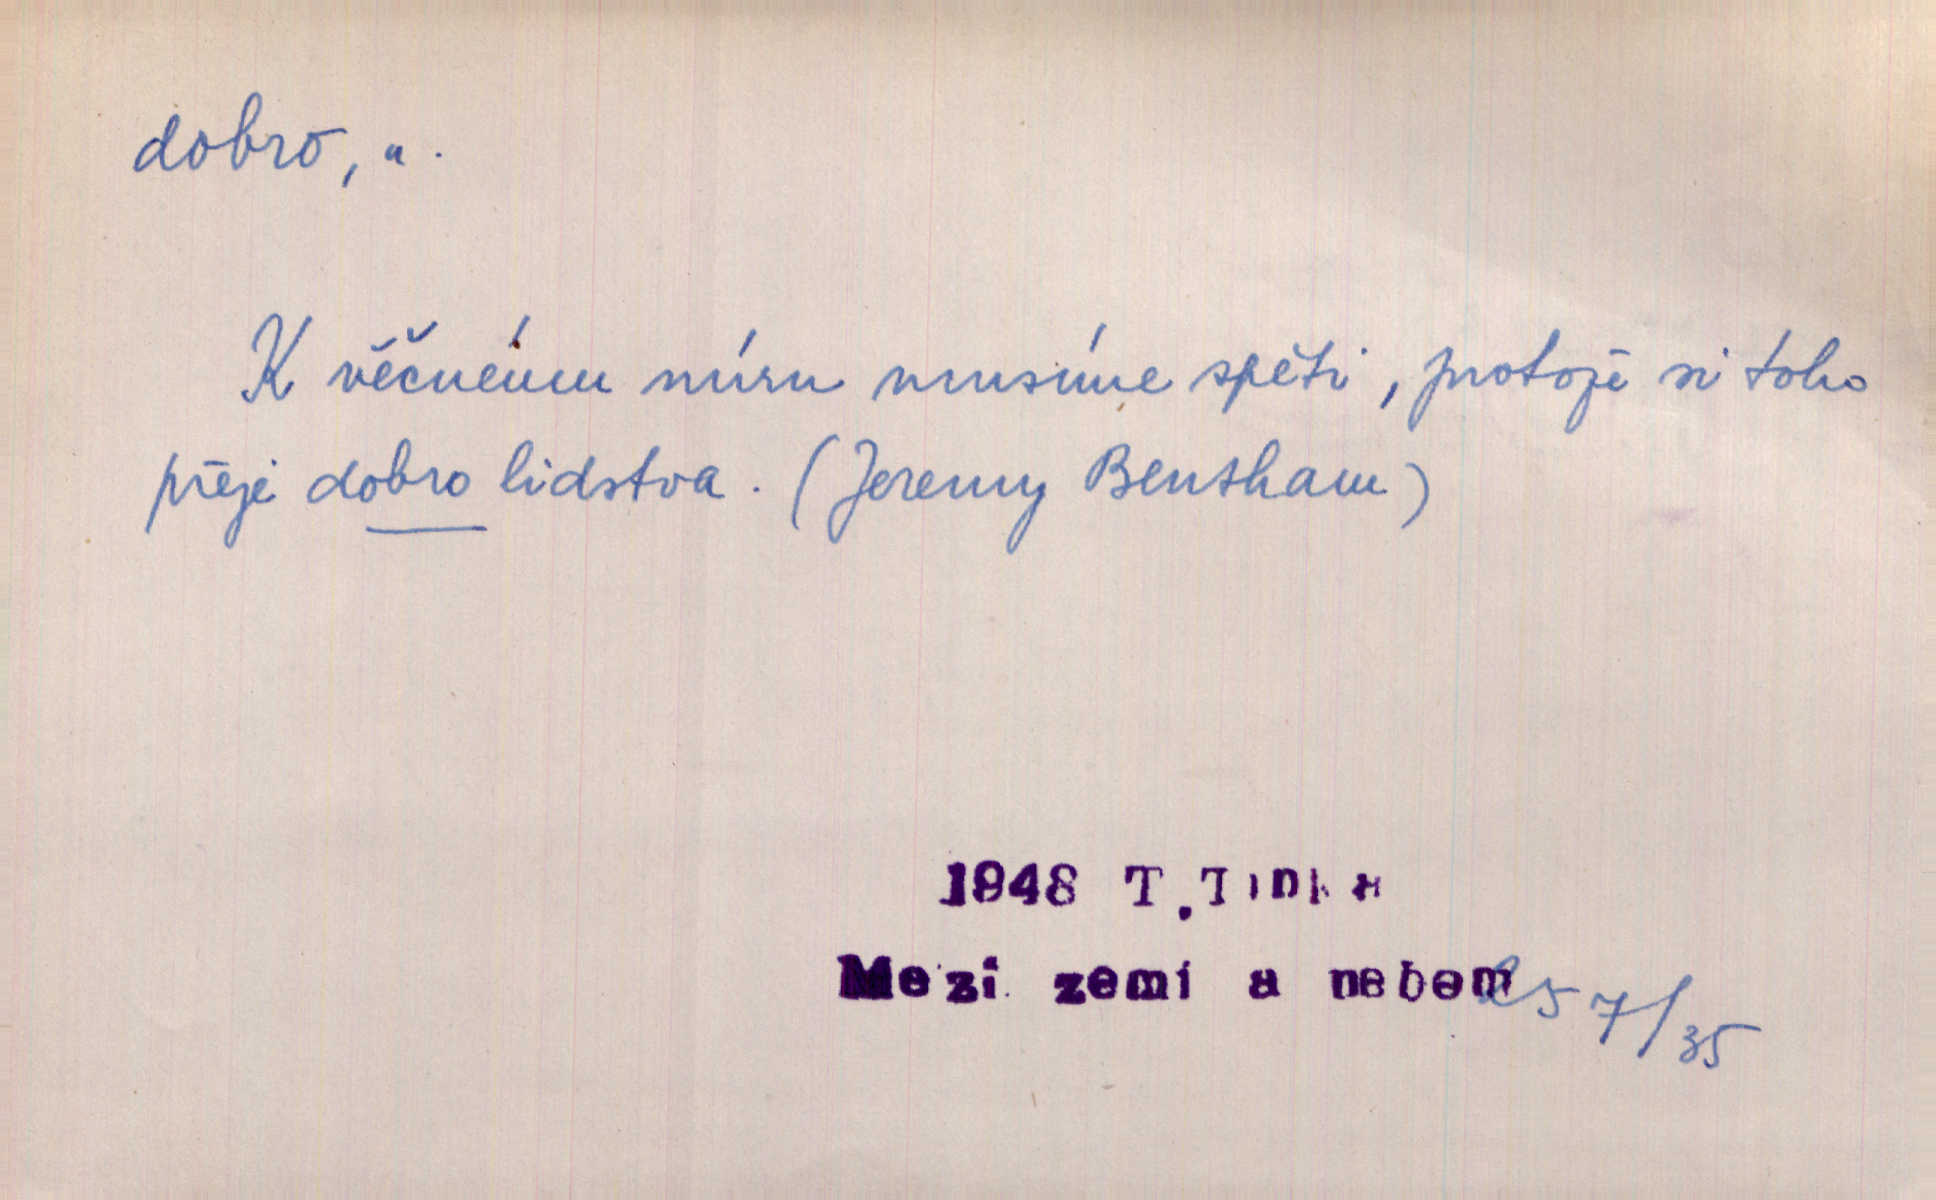 dobro, -a.
K věčnému míru musíme spěti, protože si toho
přeje dobro lidstva. (Jeremy Bentham)
1948 T.Tinka
Mezi zemí a nebem
257/35